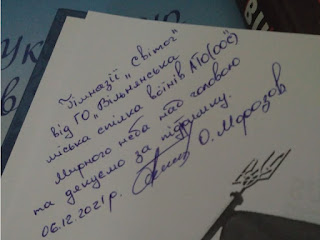 Гімназії „Світоч"
від ГО „Вільнянська
міська спілка воїнів АТО(ООС)
Мирного неба над головою
та дякуємо за підтримку.
06.12.2021р. О. Морозов